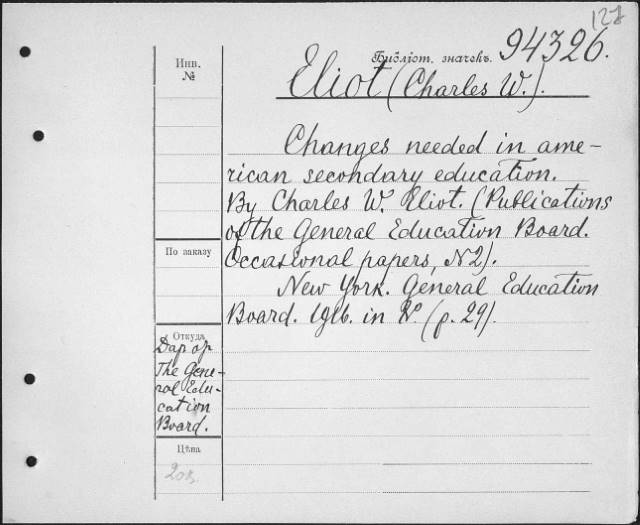 127
Инв.
№
Библіот. значекъ. 94326.
Eliot (Charles W.).
Changes needed in ame-
rican secondary education.
By Charles W. Eliot. (Publications
of the General Education Board.
Occasional papers, N2).
New York. General Education
Board. 1916. in 8°. (p. 29).
По заказу
Откуда
Дар от
The Gene-
ral Edu-
cation
Board.
Цѣна